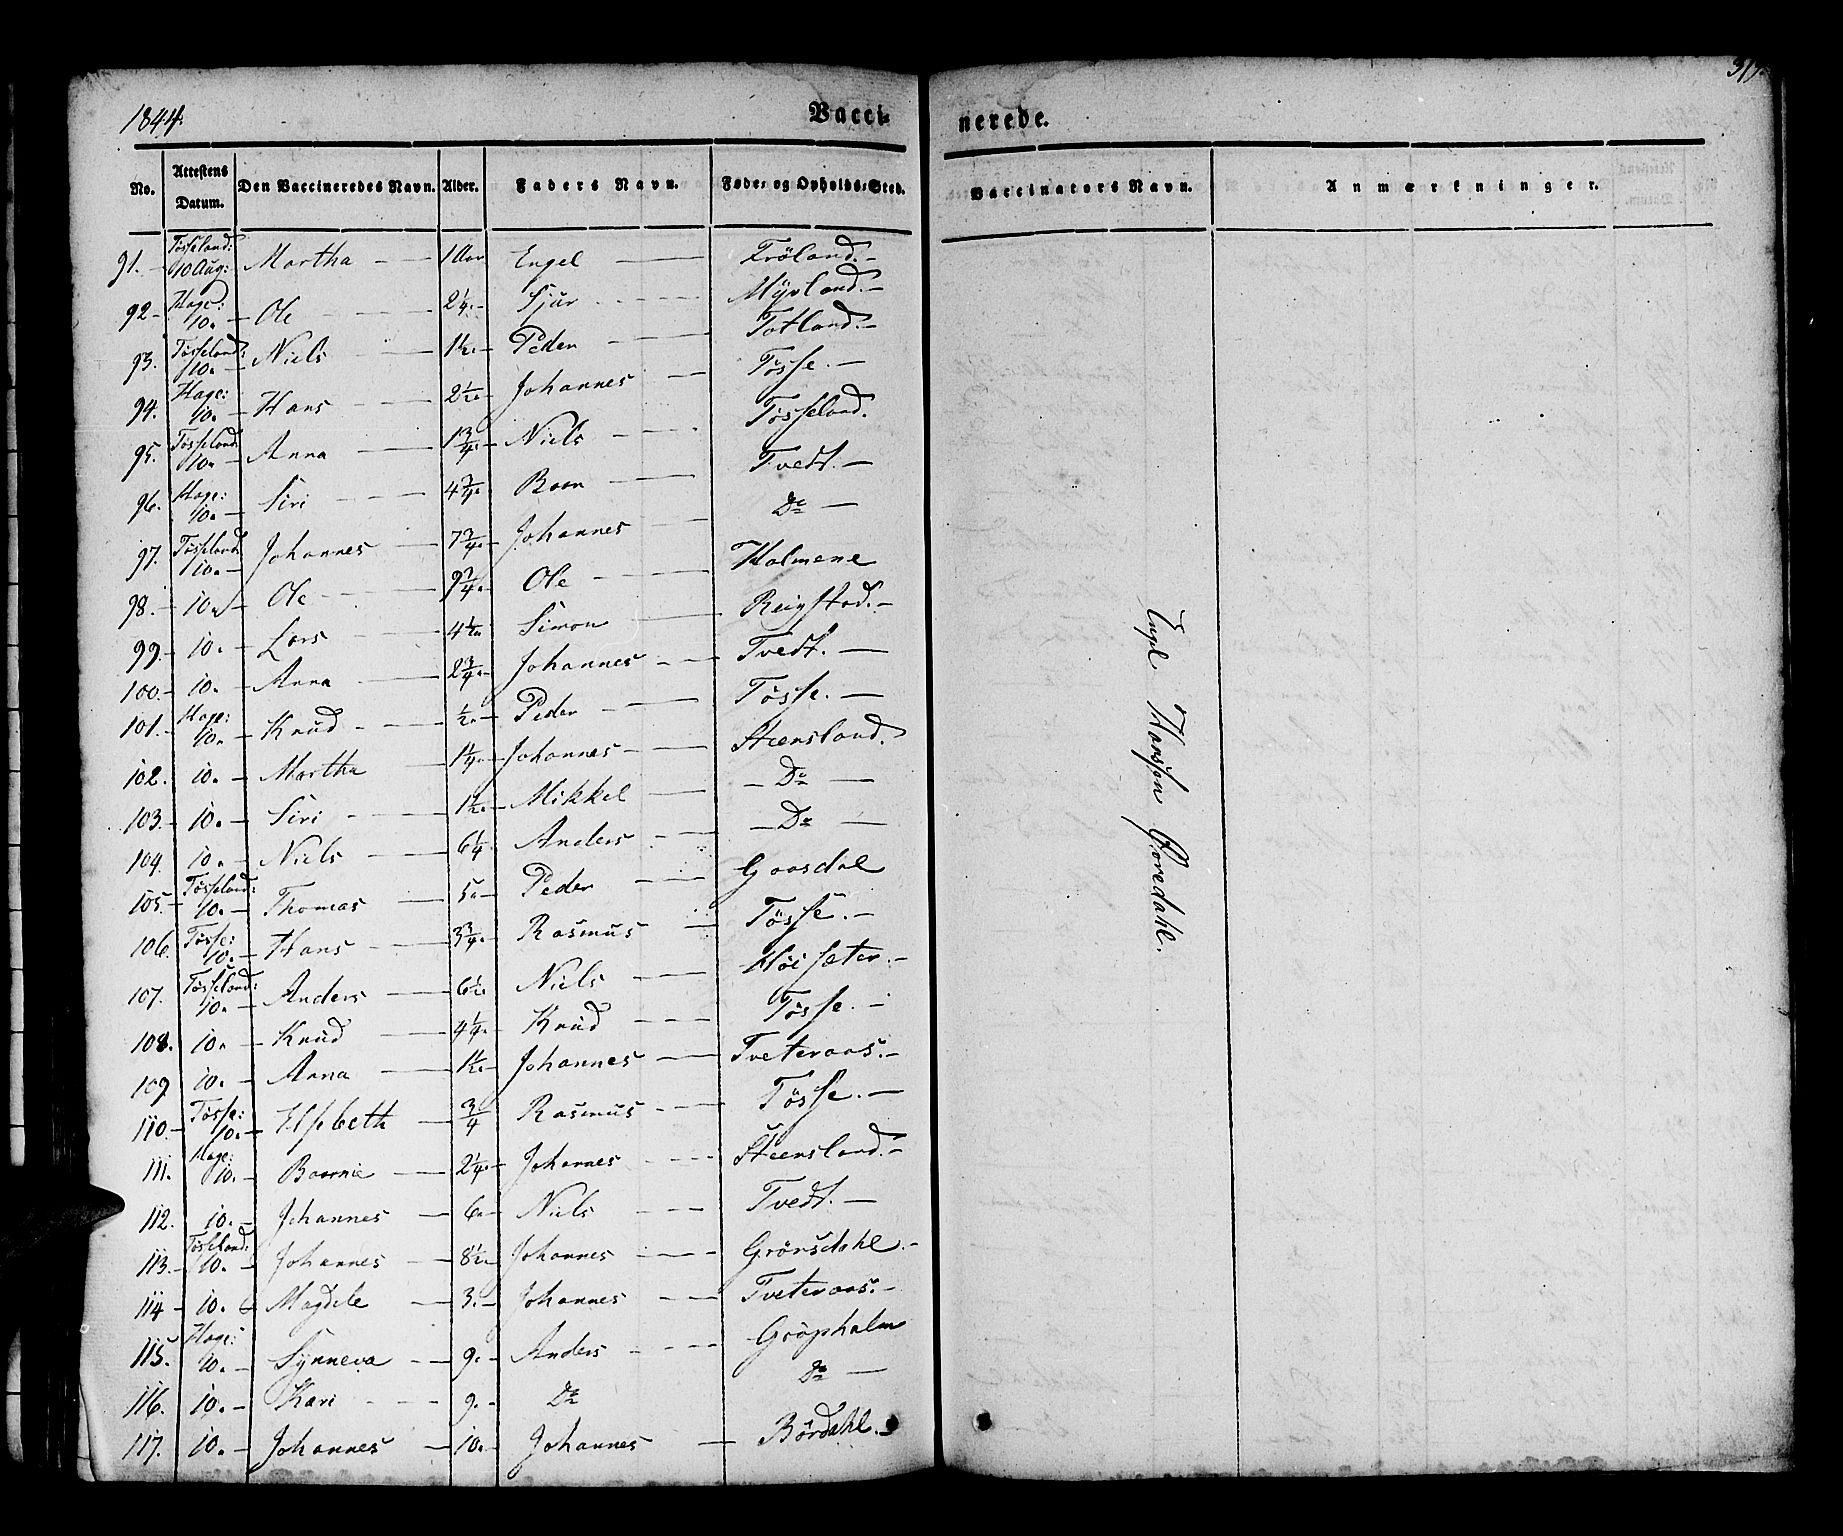 1844.
Vacci-
nerede.
No. Attestens Datum. Den Vaccineredes Navn. Alder. Faders Navn. Føde- og Opholds-Sted. Vaccinators Navn. Anmærkninger.
91. Tösseland: 10 Aug: Martha 1 Aar Engel Tröland.
92 Hage: 10. Ole 2¼ Sjur Myrland.
93. Tösseland: 10. Niels 1½ Peder Totland.
94. Hage: 10. Hans 2½ Johannes Tösse.
95. Tösseland 10. Anna 1¾ Niels Tösseland.
96. Hage: 10. Siri 4¾ Tvedt.
97. Tösseland 10. Johannes 7¾ Johannes Do
98. 10. Ole 9¾ Ole Holmene
99. 10. Lars 4½ Simon Reigstad.
100. 10. Anna 2¾ Johannes Tvedt.
101. Hage: 10. Knud ½ Peder Tösse.
102. 10. Martha 1¼ Johannes Steensland.
103. 10. Siri 1½ Mikkel Do
104. 10. Niels 6¼ Anders Do
105. Tösseland: 10. Thomas 5 Peder Gaasdal
106. Tösse: 10. Hans 3¾ Rasmus Tösse.
107. Tösseland: 10. Anders 6½ Niels Höisæter.
108. 10. Knud 4¼ Knud Tösse.
109 10. Anna 1½ Johannes Tveteraas.
110. Tösse: 10. Elsbeth ¾ Rasmus Tösse.
111. Hage: 10. 2¼ Johannes Steensland.
112. 10. Johannes 6 Niels Tvedt.
113. Tösseland: 10. Johannes 8½ Johannes Grönsdahl.
114 10. Magdele 3. Johannes Tveteraas.
115. Hage: 10. Synneva 9. Anders Gröpholm
116. 10. Kari 9. Do Do
117. 10. Johannes 10. Johannes Bördahl.
Engel Hanssen